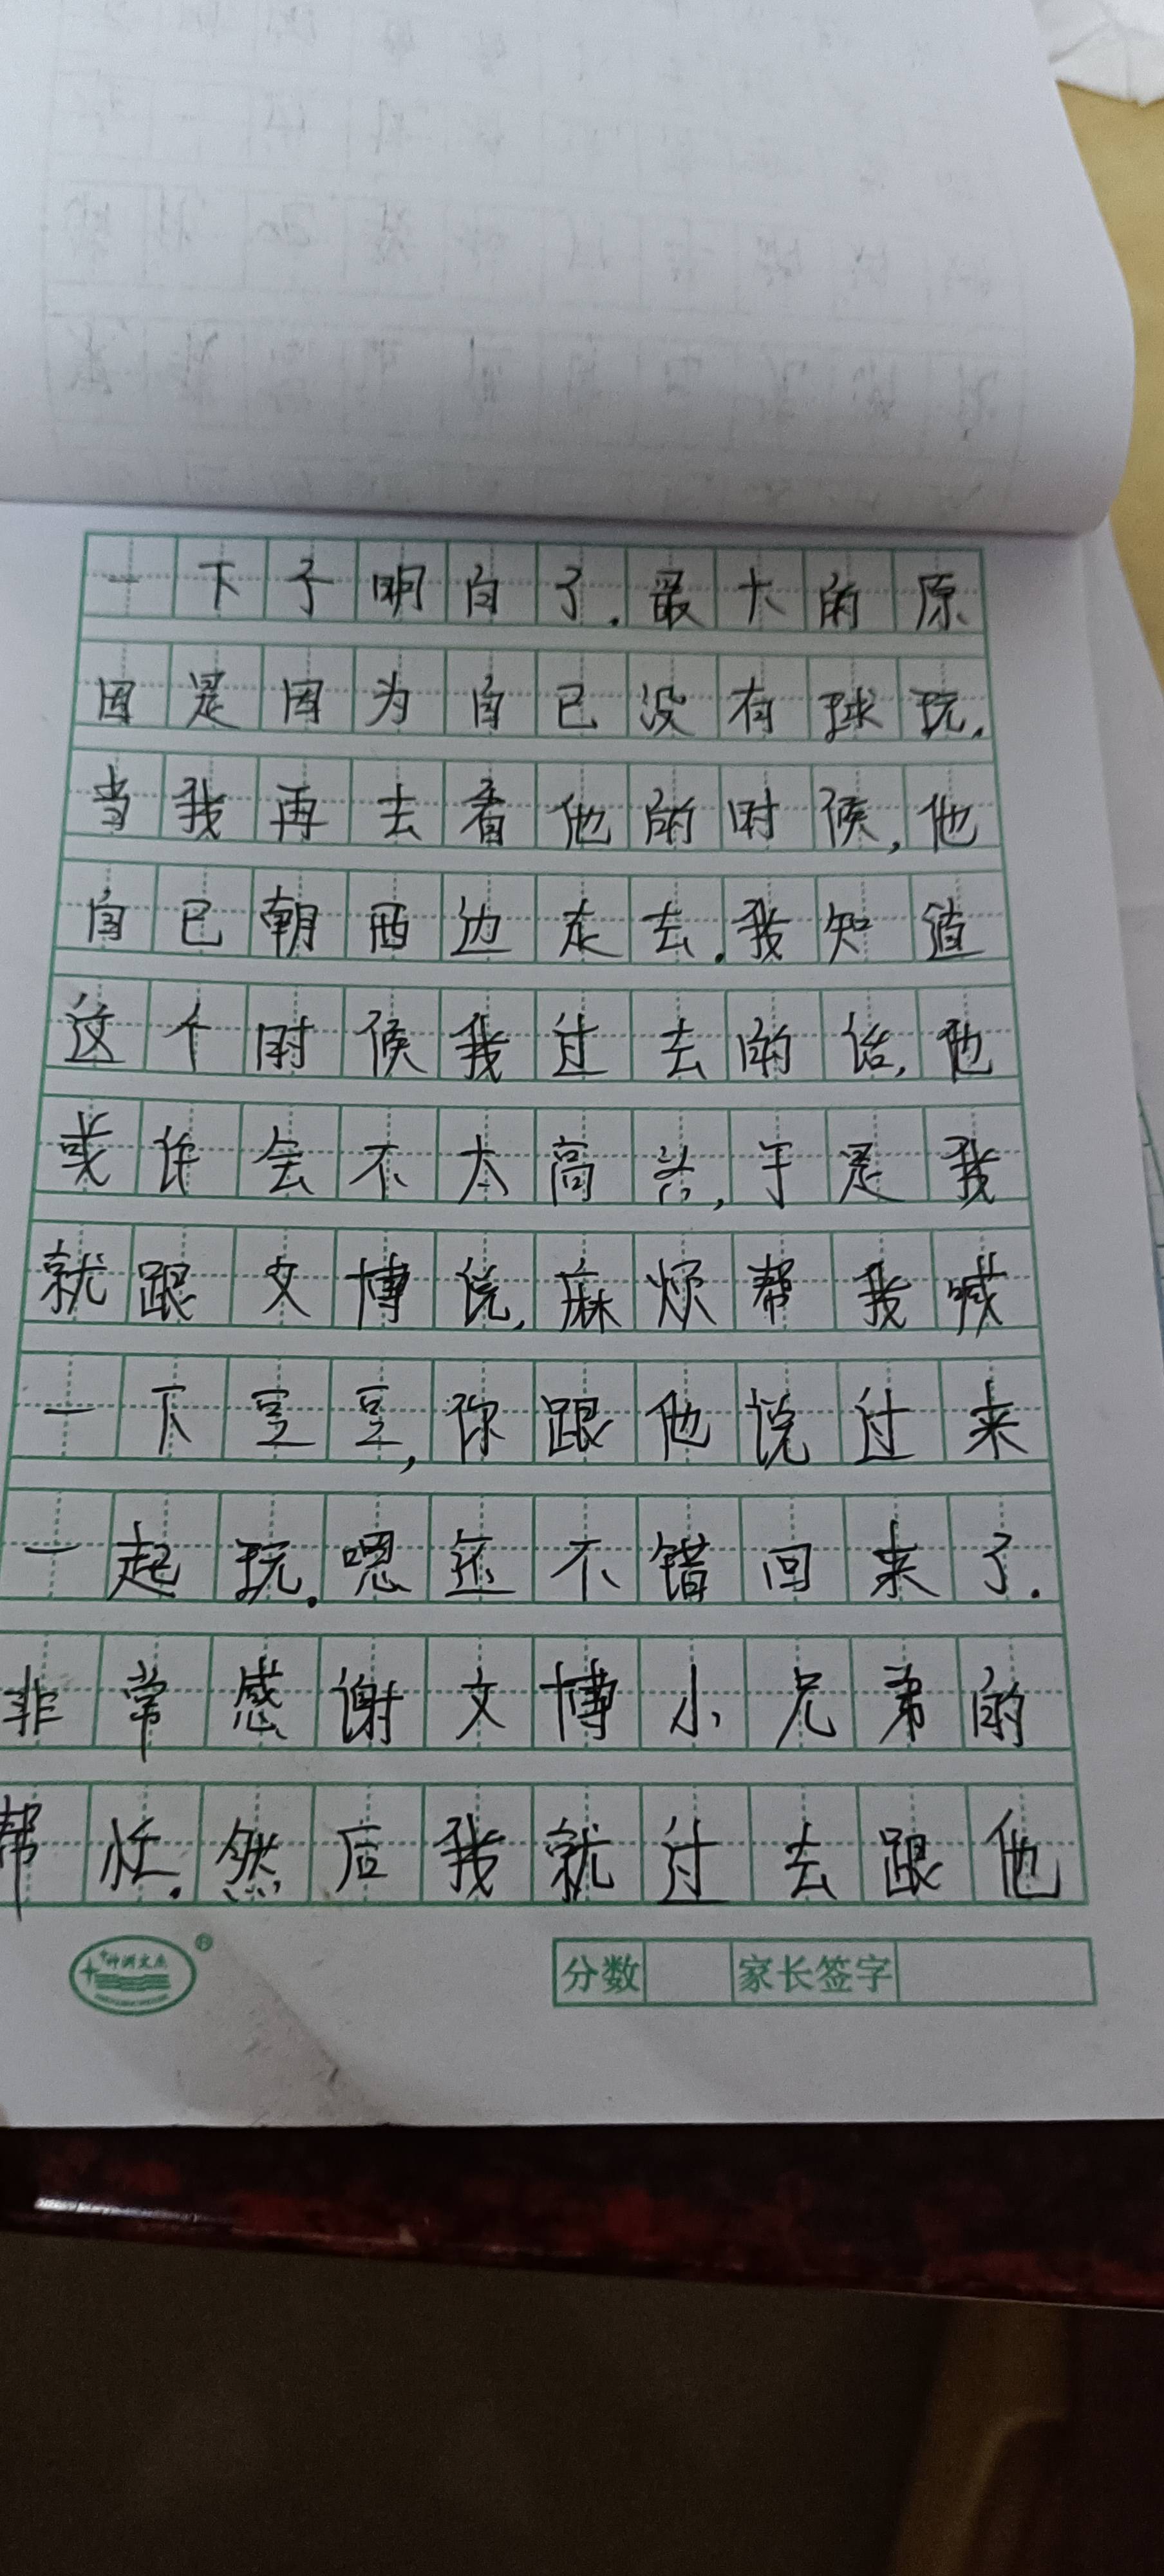 一下子明白了.最大的原
因是因为自己没有球玩.
当我再去看他的时候,他
自己朝西边走去.我知道
这个时候我过去的话,他
或许会不太高兴,于是我
就跟文博说,麻烦帮我喊
一下豆豆,你跟他说过来
一起玩.嗯还不错回来了.
非常感谢文博小兄弟的
帮忙.然后我就过去跟他
分数 家长签字